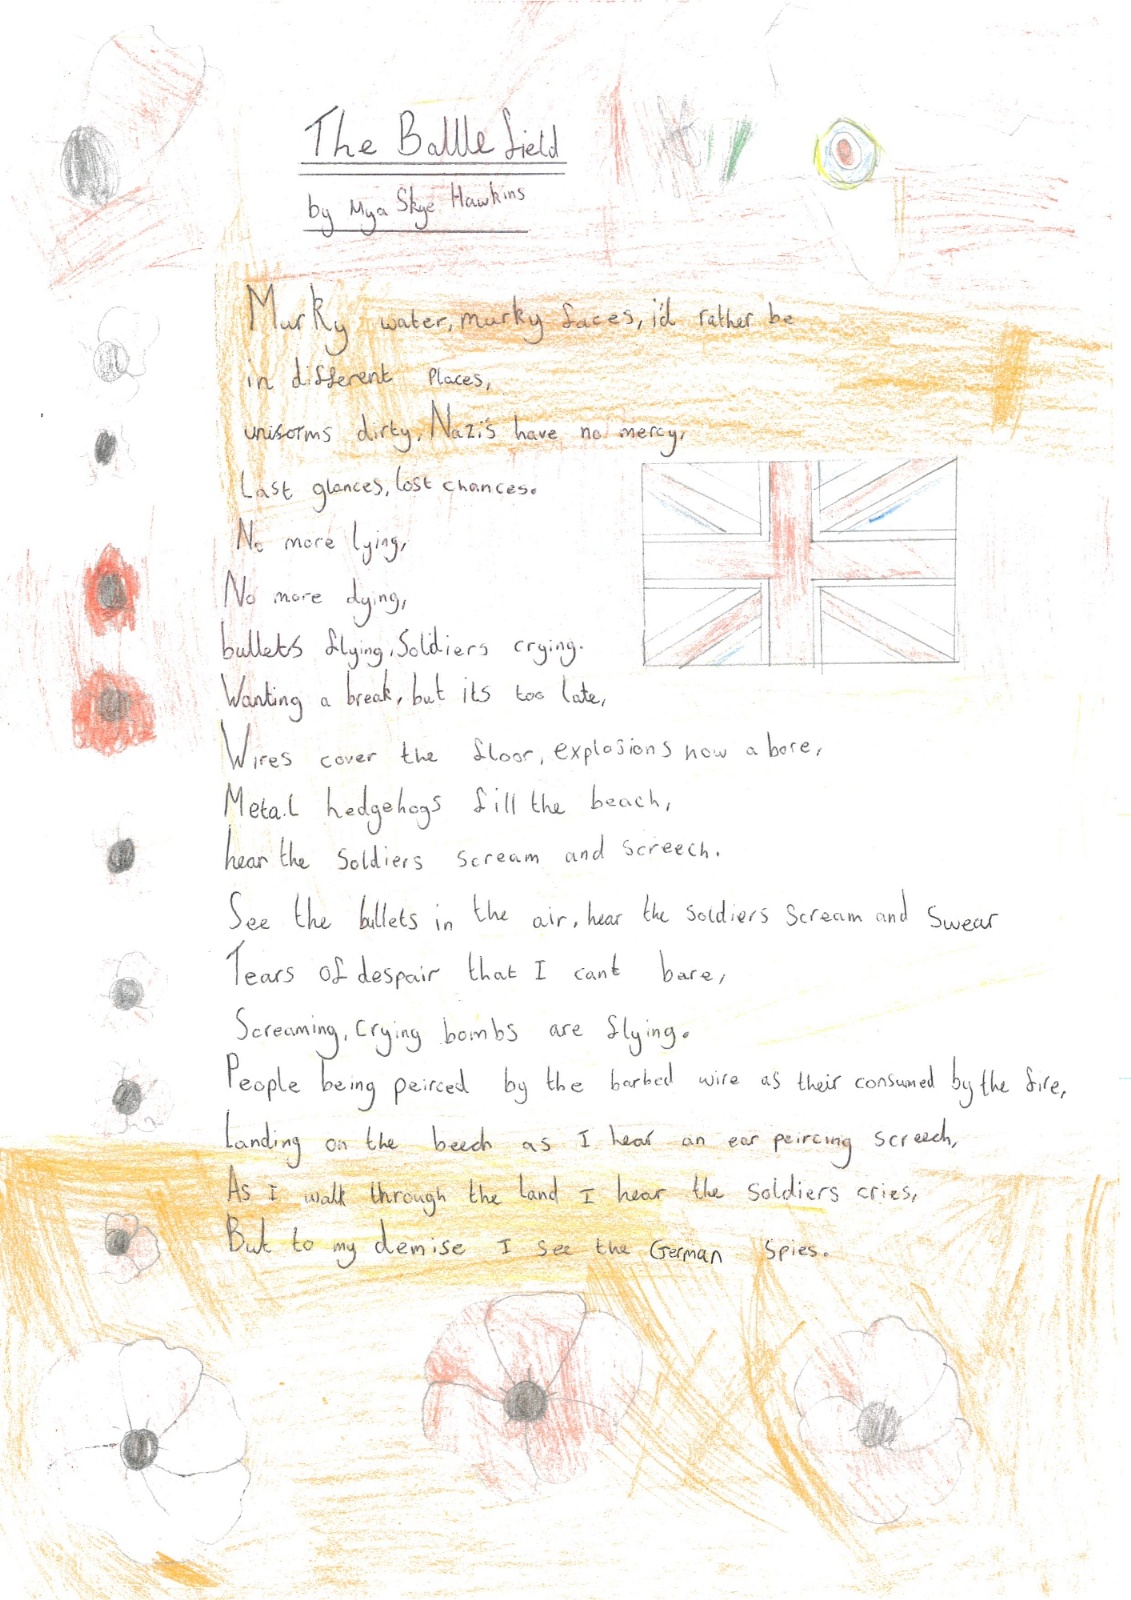 The Battle field
by Mya Skye Hawkins
Murky water, murky faces, i'd rather be
in different places,
uniforms dirty, Nazi's have no mercy,
Last glances, lost chances.
No more lying,
No more dying,
bullets flying, Soldiers crying.
Wanting a break, but its too late,
Wires cover the floor, explosions now a bore,
Metal hedgehogs fill the beach,
hear the soldiers scream and screech.
See the bullets in the air, hear the soldiers scream and swear
Tears of despair that I cant bare,
Screaming, crying bombs are flying.
People being peirced by the barbed wire as their consumed by the fire,
Landing on the beech as I hear an ear peircing screech,
As I walk through the land I hear the soldiers cries,
But to my demise I see the German spies.